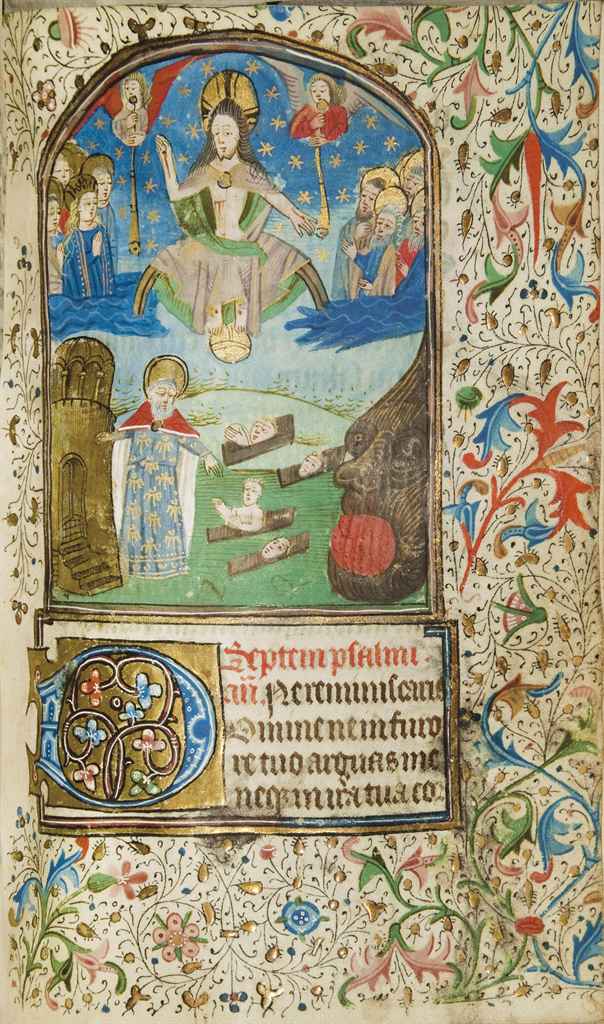 Septem psalmi
añ. Ne reminiscaris
DOmine ne in furo
re tuo arguas me
neq; in ira tua co